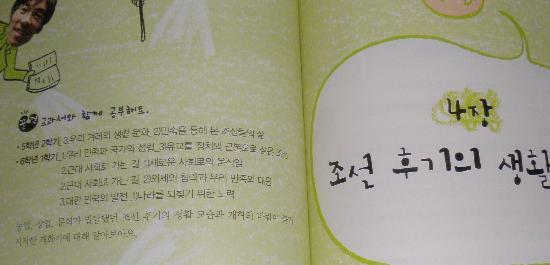 교과서와 함께 공부해요.
• 5학년 2학기_3.우리 겨레의 생활 문화_2)민속을 통해 본 조상들의 삶
• 6학년 1학기_1.우리 민족과 국가의 성립_3)유교를 정치의 근본으로 삼은 조선
2.근대 사회로 가는 길_1)새로운 사회로의 움직임
2.근대 사회로 가는 길_2)외세의 침략과 우리 민족의 대응
3.대한민국의 발전_1)나라를 되찾기 위한 노력
농업, 상업, 문화가 발달했던 조선 후기의 생활 모습과 개혁의 바람이 불기
시작한 개화기에 대해 알아보아요.
4장
조선 후기의 생활